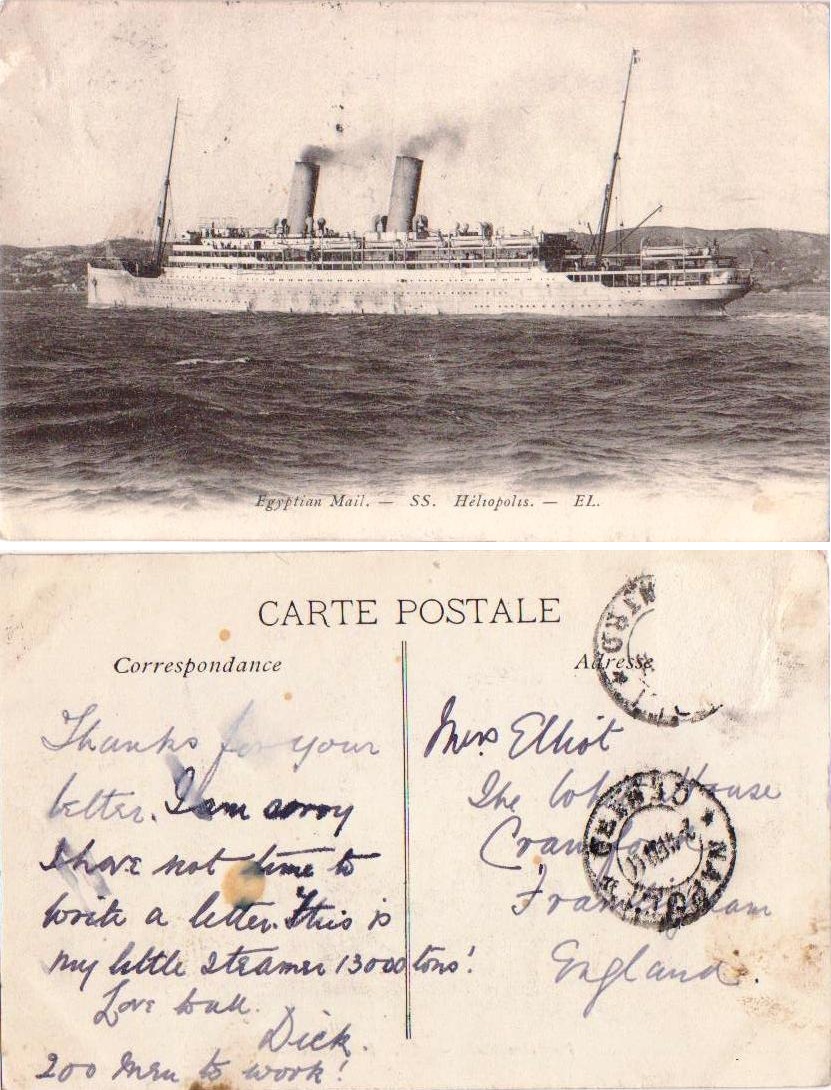 Egyptian Mail. — SS. Héliopolis. — EL.
CARTE POSTALE
Correspondance
Adresse
Thanks for your
letter. I am sorry
I have not time to
write a letter. This is
my little steamer 13000 tons!
Love to all.
Dick.
200 men to work!
Elliot
The House
England.